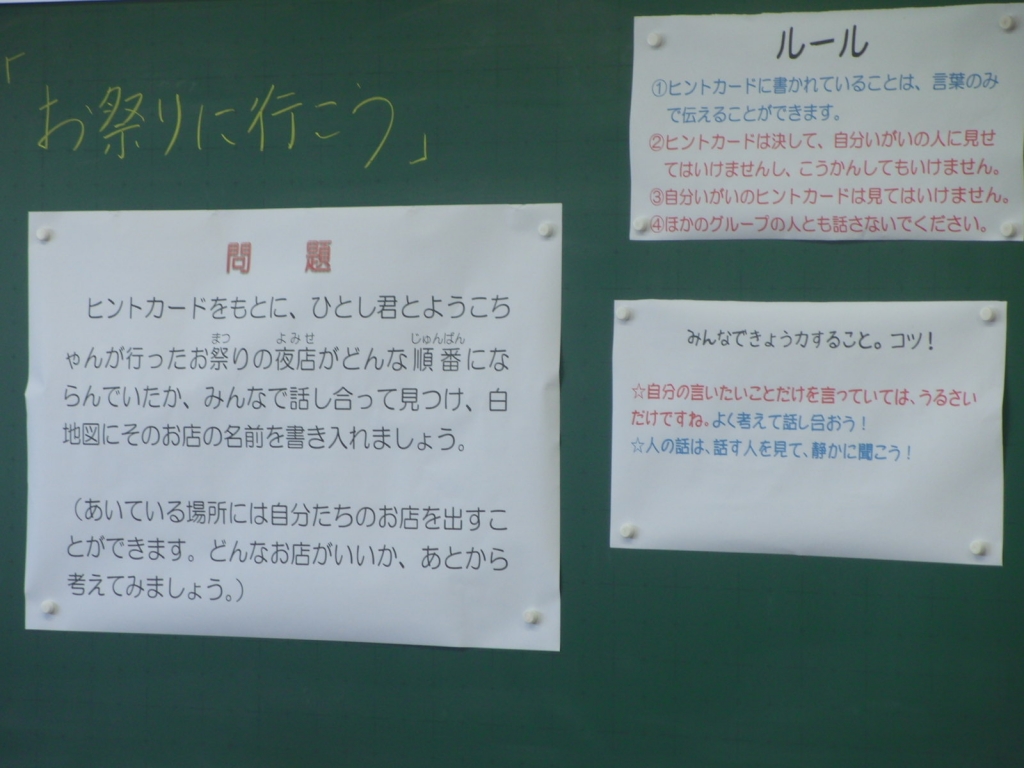 「お祭りに行こう」
問　題
ヒントカードをもとに、ひとし君とようこち
ゃんが行ったお祭りの夜店がどんな順番にな
らんでいたか、みんなで話し合って見つけ、白
地図にそのお店の名前を書き入れましょう。
（あいている場所には自分たちのお店を出すこ
とができます。どんなお店がいいか、あとから
考えてみましょう。）
まつ
よみせ
じゅんばん
ルール
①ヒントカードに書かれていることは、言葉のみ
で伝えることができます。
②ヒントカードは決して、自分いがいの人に見せ
てはいけませんし、こうかんしてもいけません。
③自分いがいのヒントカードは見てはいけません。
④ほかのグループの人とも話さないでください。
みんなできょう力すること。コツ！
☆自分の言いたいことだけを言っていては、うるさい
だけですね。よく考えて話し合おう！
☆人の話は、話す人を見て、静かに聞こう！